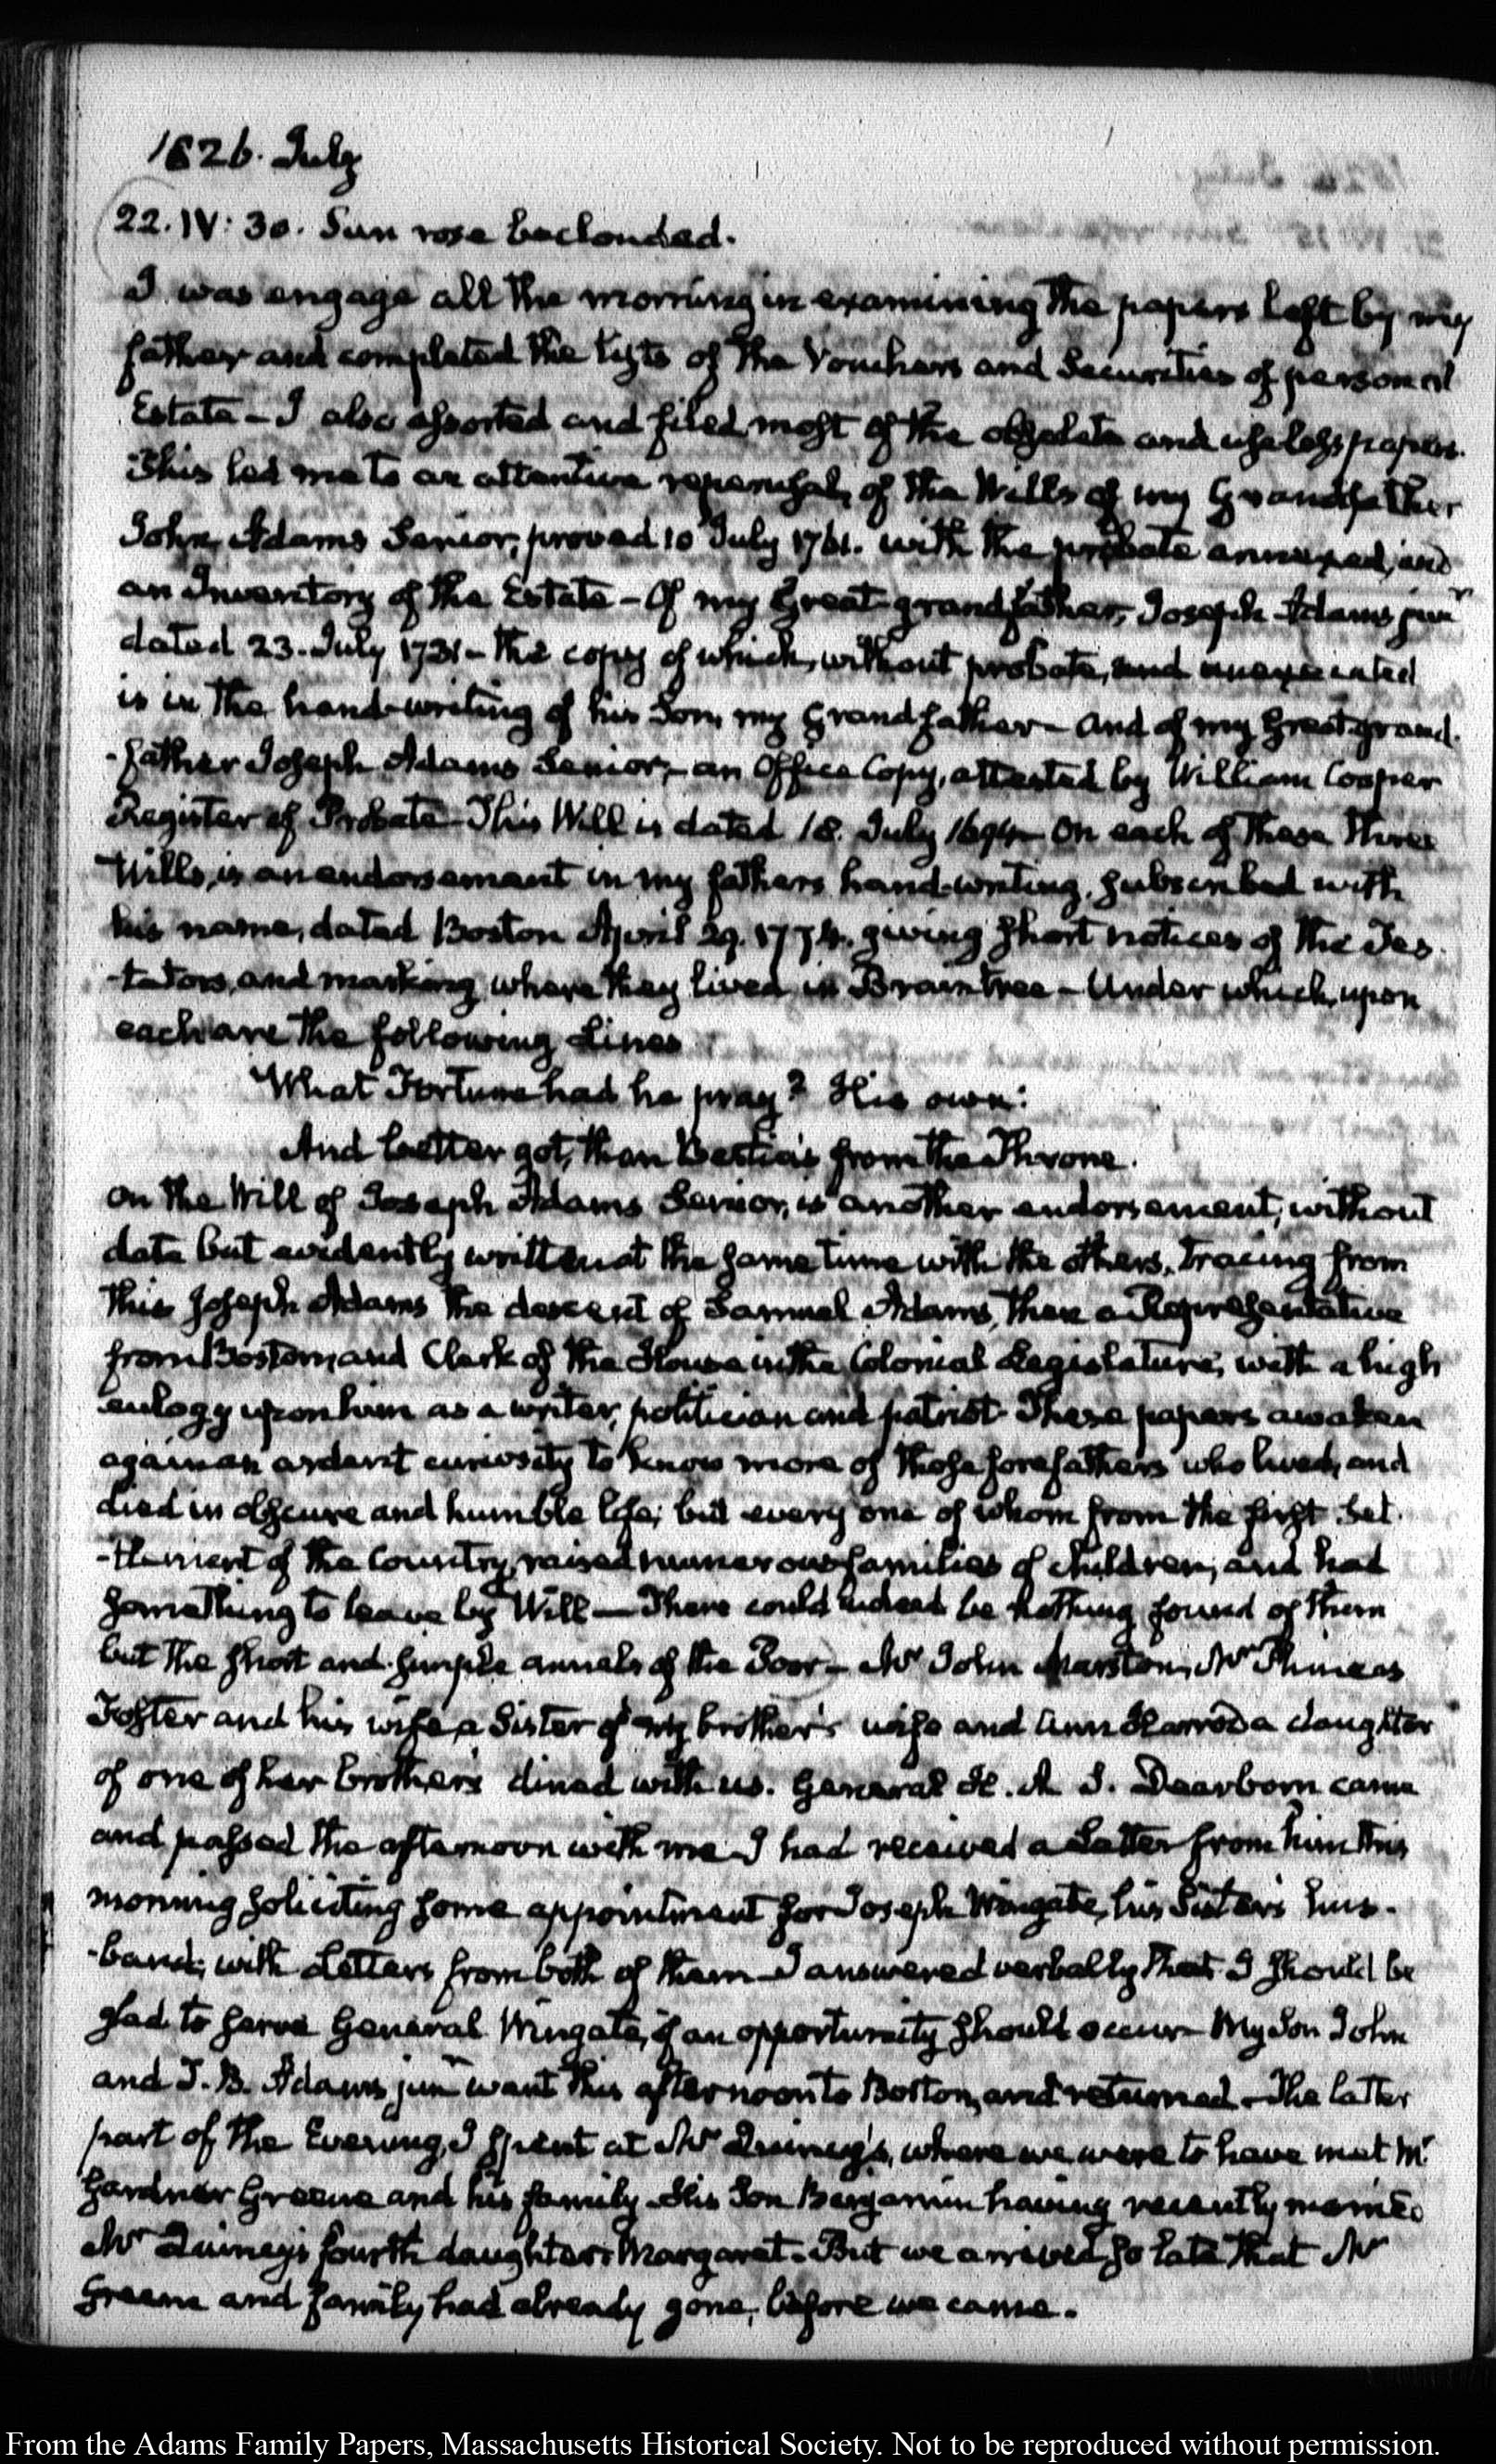 1826. July
22. IV: 30. Sun rose beclouded.
I was engage all the morning in examining the papers left by my
father and completed the lists of the Vouchers and Securities of personal
Estate – I also assorted and filed most of the obsolete and useless papers.
This led me to an attentive reperusal, of the Wills of my Grandfather
John Adams Senior, proved 10 July 1761. with the probate annexed, and
an Inventory of the Estate – Of my Great-grandfather, Joseph Adams junr
dated 23. July 1731 – the copy of which, without probate, and unexecuted
is in the hand-writing of his Son, my Grandfather – and of my Great-grand-
-father Joseph Adams Senior, – an Office Copy, attested by William Cooper
Register of Probate – This Will is dated 18. July 1694 – On each of these three
Wills, is an endorsement in my fathers hand-writing, subscribed with
his name, dated Boston April 29. 1774. giving short notices of the Tes-
-tators, and marking where they lived in Braintree – Under which, upon
each are the following Lines
What Fortune had he pray? His own:
And better got, than Bestia's from the Throne.
On the Will of Joseph Adams Senior, is another endorsement, without
date but evidently written at the same time with the others, tracing from
this Joseph Adams the descent of Samuel Adams, then a Representative
from Boston, and Clerk of the House in the Colonial Legislature, with a high
eulogy upon him as a writer, politician and patriot – These papers awaken
again an ardent curiosity to know more of those forefathers who lived, and
died in obscure and humble life; but every one of whom from the first Set-
-tlement of the Country, raised numerous families of children, and had
something to leave by Will — There could indeed be nothing found of them
but the short and simple annals of the Poor – Mr John Marston, Mr Phineas
Foster and his wife, a Sister of my brother's wife and Ann Harrod a daughter
of one of her brothers dined with us. General H. A. S. Dearborn came
and passed the afternoon with me – I had received a Letter from him this
morning soliciting some appointment for Joseph Wingate, his Sister's hus-
-band; with Letters from both of them – I answered verbally that I should be
glad to serve General Wingate, if an opportunity should occur – My Son John
and T. B. Adams junr went this afternoon to Boston, and returned – The latter
part of the Evening, I spent at Mr Quincy's, where we were to have met Mr
Gardner Greene and his family – His Son Benjamin having recently married
Mr Quincy's fourth daughter Margaret. But we arrived so late that Mr
Greene and family had already gone, before we came.
From the Adams Family Papers, Massachusetts Historical Society. Not to be reproduced without permission.